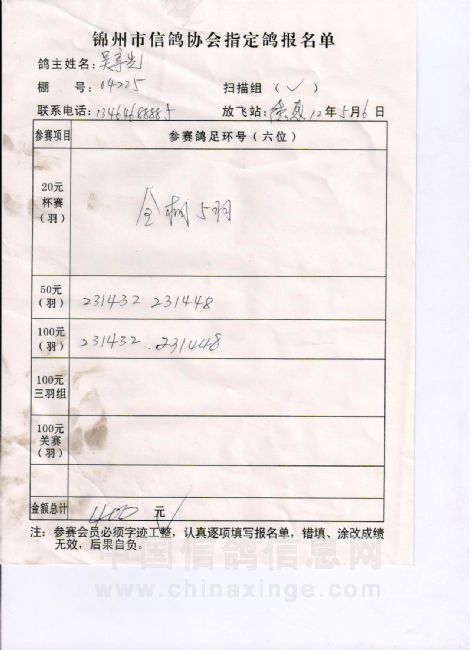 锦州市信鸽协会指定鸽报名单
鸽主姓名：吴
棚 号：04225
扫描组（✓）
联系电话：13464688885
放飞站： 12年5月6日
参赛项目 参赛鸽足环号（六位）
20元
杯赛
（羽）
全棚5羽
50元
（羽）
231432 231448
100元
（羽）
231432.231448
100元
三羽组
100元
关赛
（羽）
金额总计 400 元
注：参赛会员必须字迹工整，认真逐项填写报名单，错填、涂改成绩
无效，后果自负。
中国信鸽信息网
www.chinaxinge.com